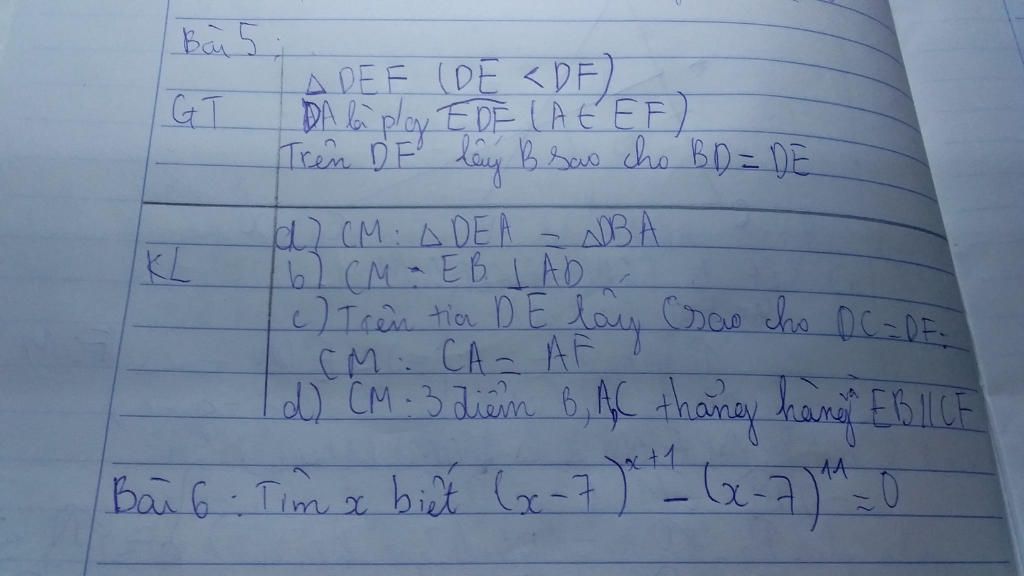 Bài 5:
△DEF (DE < DF)
GT DA là p/g EDF (A ∈ EF)
Trên DF lấy B sao cho BD = DE
a) CM: △DEA = △DBA
KL b) CM: EB ⊥ AD
c) Trên tia DE lấy C sao cho DC = DF.
CM: CA = AF
d) CM: 3 điểm B, A, C thẳng hàng EB // CF
Bài 6: Tìm x biết (x-7)^{x+1} - (x-7)^{11} = 0